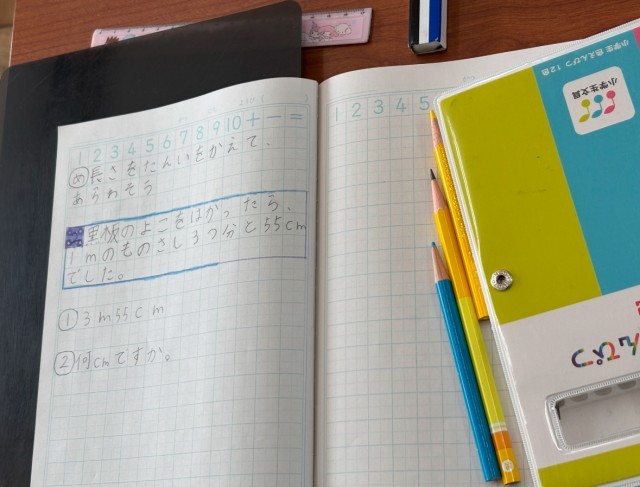 1 2 3 4 5 6 7 8 9 10 + − =
め 長さをたんいをかえて、
あらわそう
黒板のよこをはかったら、
1mのものさし3つ分と55cm
でした。
① 3m55cm
② 何cmですか。
1 2 3 4 5
小学生文具
小学生 色えんぴつ 12色